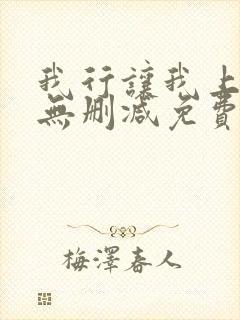 我行讓我上
無刪減免費
梅澤春人